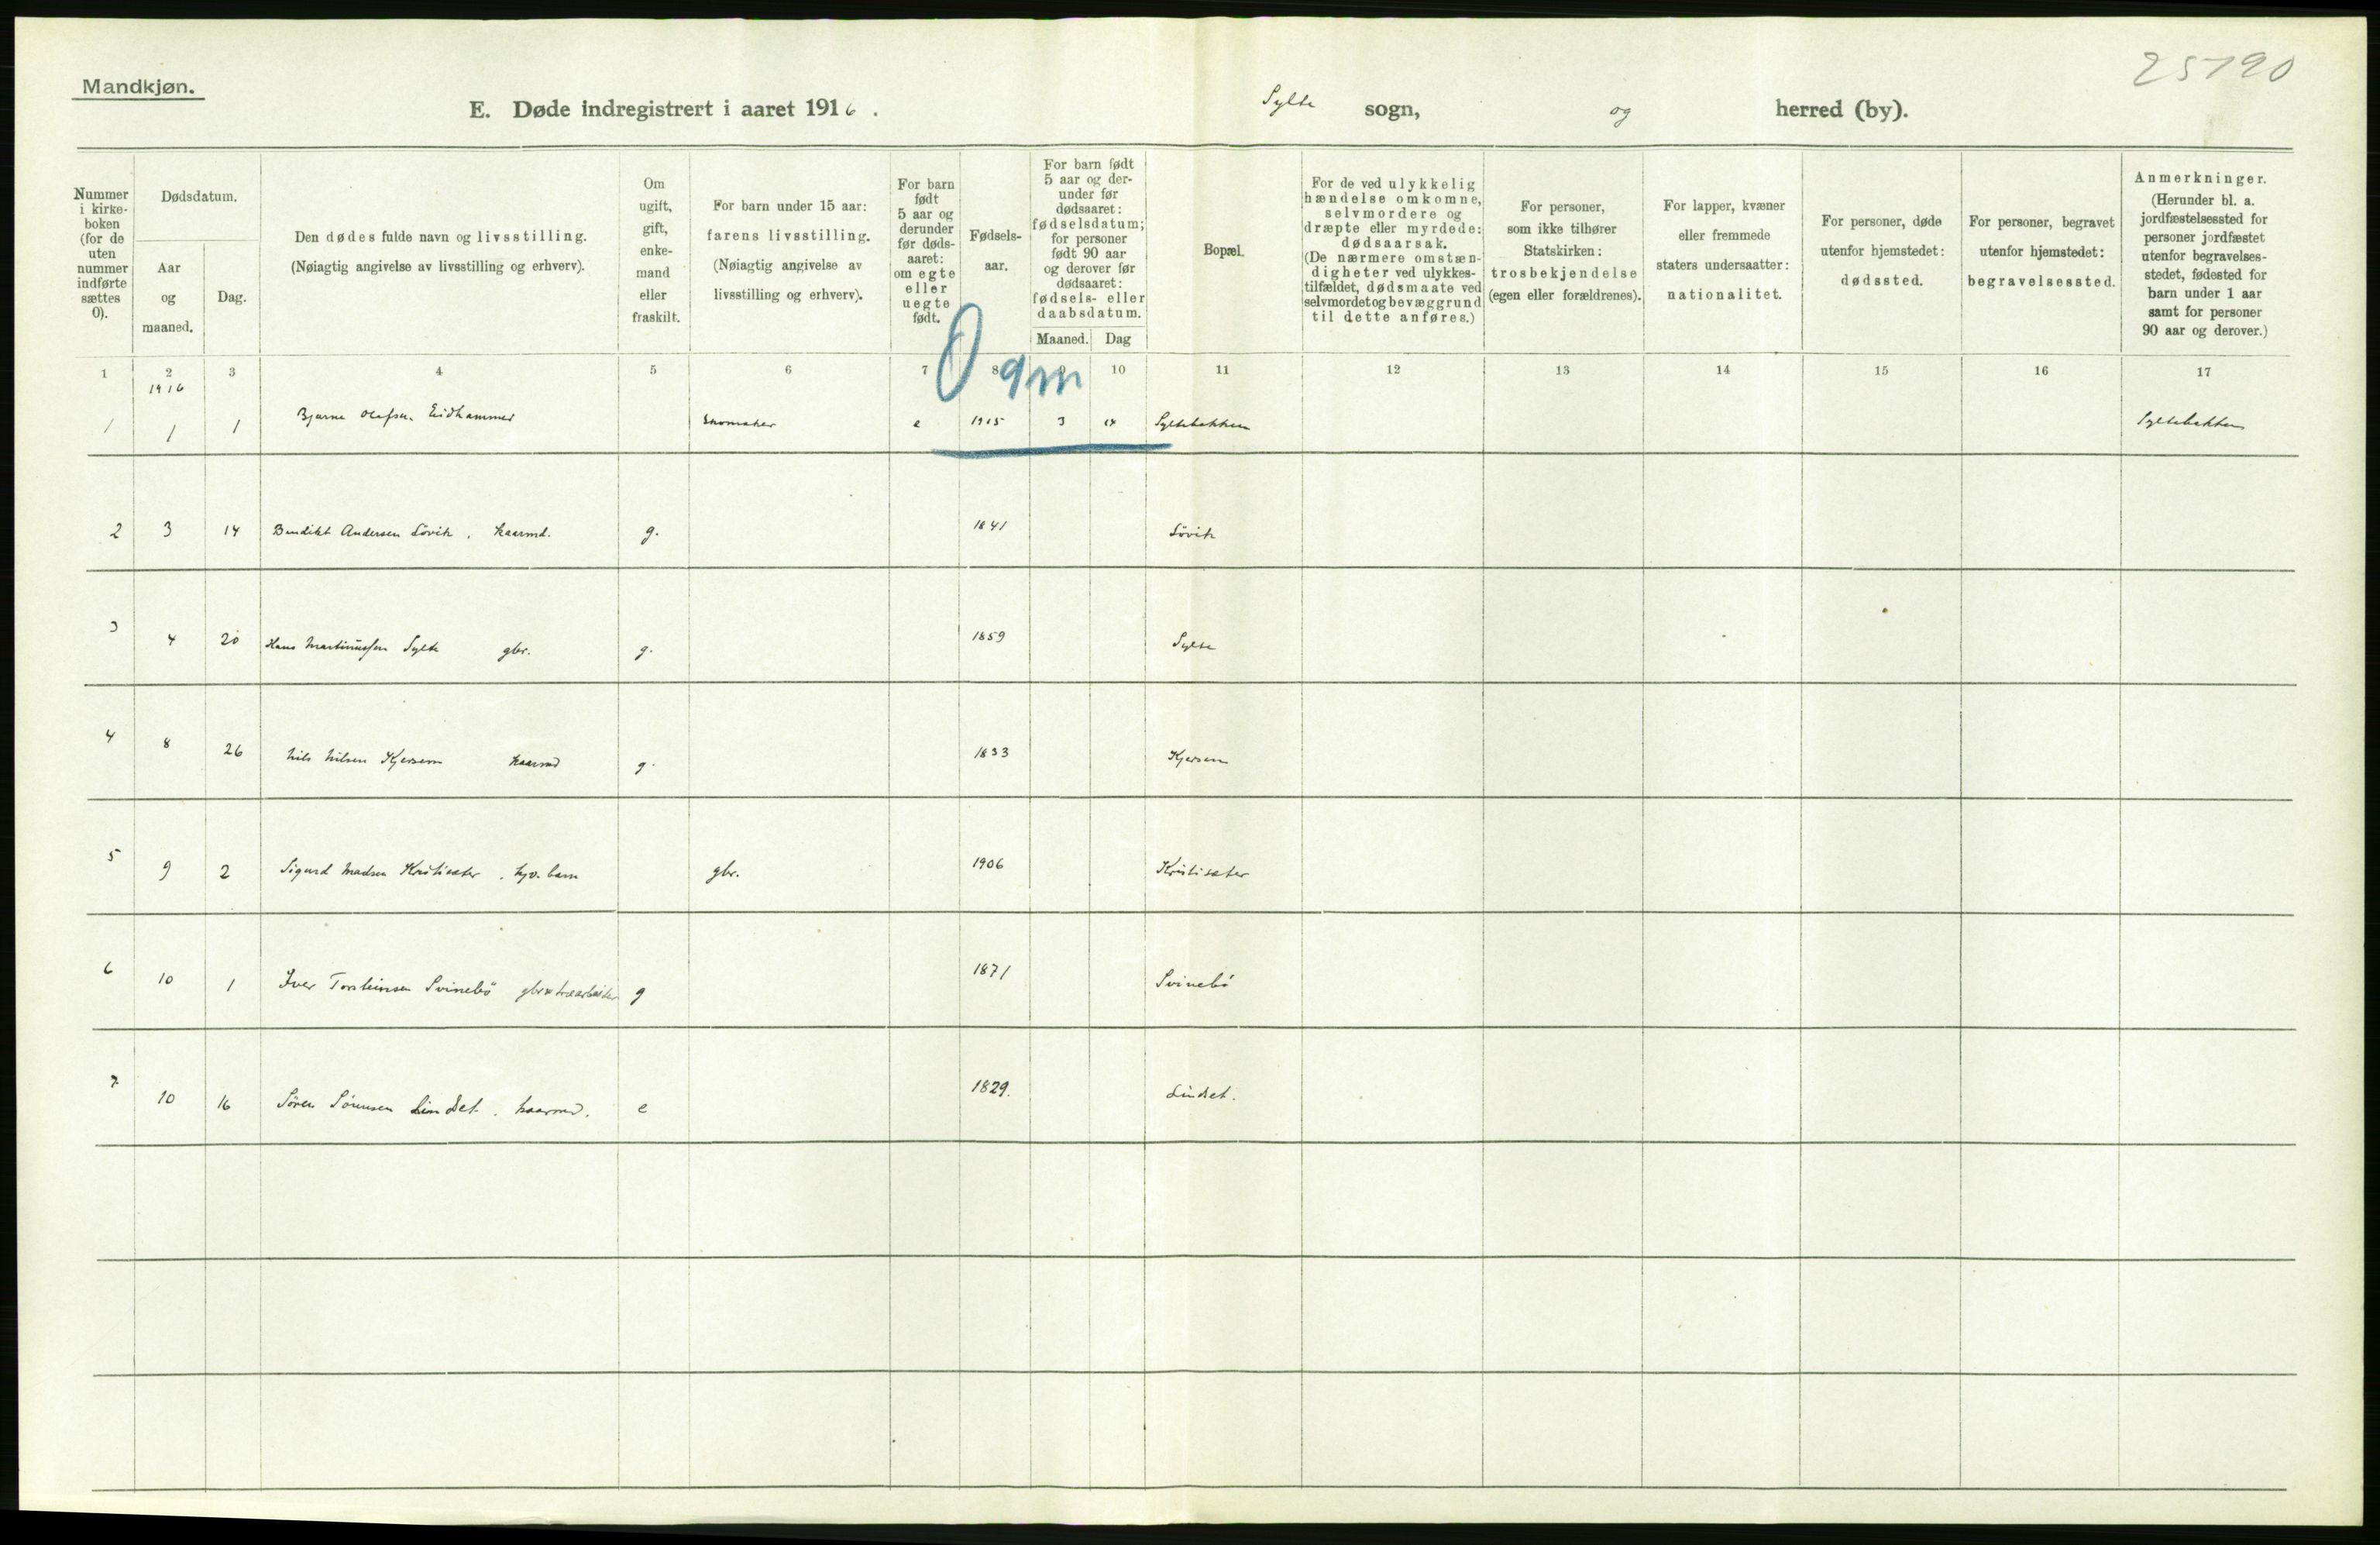 25190
Mandkjøn.
E. Døde indregistrert i aaret 1916.
Sylte sogn, og herred (by).
Nummer i kirke-boken (for de uten nummer indførte sættes 0).
Dødsdatum.
Aar og maaned.
Dag.
Den dødes fulde navn og livsstilling.
(Nøiagtig angivelse av livsstilling og erhverv).
Om ugift, gift, enke-mand eller fraskilt.
For barn under 15 aar:
farens livsstilling.
(Nøiagtig angivelse av livsstilling og erhverv).
For barn født 5 aar og derunder før døds-aaret: om egte eller uegte født.
Fødsels-aar.
For barn født 5 aar og der-under før dødsaaret: fødselsdatum; for personer født 90 aar og derover før dødsaaret: fødsels- eller daabsdatum.
Maaned. Dag
Bopæl.
For de ved ulykkelig hændelse omkomne, selvmordere og dræpte eller myrdede: dødsaarsak.
(De nærmere omstæn-digheter ved ulykkes-tilfældet, dødsmaate ved selvmordet og bevæggrund til dette anføres.)
For personer, som ikke tilhører Statskirken: trosbekjendelse (egen eller forældrenes).
For lapper, kvæner eller fremmede staters undersaatter: nationalitet.
For personer, døde utenfor hjemstedet: dødssted.
For personer, begravet utenfor hjemstedet: begravelsessted.
Anmerkninger.
(Herunder bl. a. jordfæstelsessted for personer jordfæstet utenfor begravelses-stedet, fødested for barn under 1 aar samt for personer 90 aar og derover.)
1 2 3 4 5 6 7 8 9 10 11 12 13 14 15 16 17
0 9m
1916
1 1 1 Bjarne Olafsen Eidhammer skomaker e 1915 3 14 Syltebakken Syltebakken
2 3 14 Bendikt Andersen Lövik, kaarmd. g. 1841 Lövik
3 4 20 Hans Martinussen Sylte gbr. g. 1859 Sylte
4 8 26 Nils Nilsen Kjersem kaarmd g. 1833 Kjersem
5 9 2 Sigurd Madsen Kristisæter, hjv. barn gbr. 1906 Kristisæter
6 10 1 Iver Torsteinsen Svinebö gbr & træarbeider g 1871 Svinebö
7 10 16 Sören Sörensen Lindset, kaarmd. e 1829. Lindset.